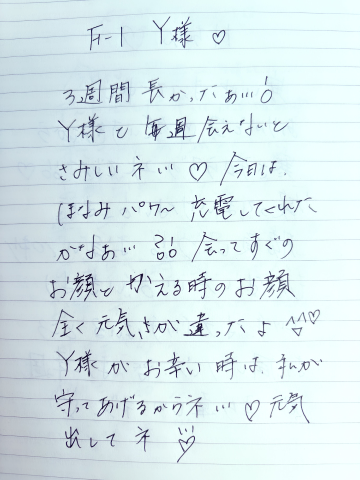 F-1 Y様♡
3週間長かったぁ…!
Y様と毎週会えないと
さみしいネ…♡今日は、
ほなみパワ〜充電してくれた
かなぁ…?!会ってすぐの
お顔とかえる時のお顔
全く元気さが違ったよ^^♡
Y様がお辛い時は、私が
守ってあげるからネ…♡元気
出してネ♡